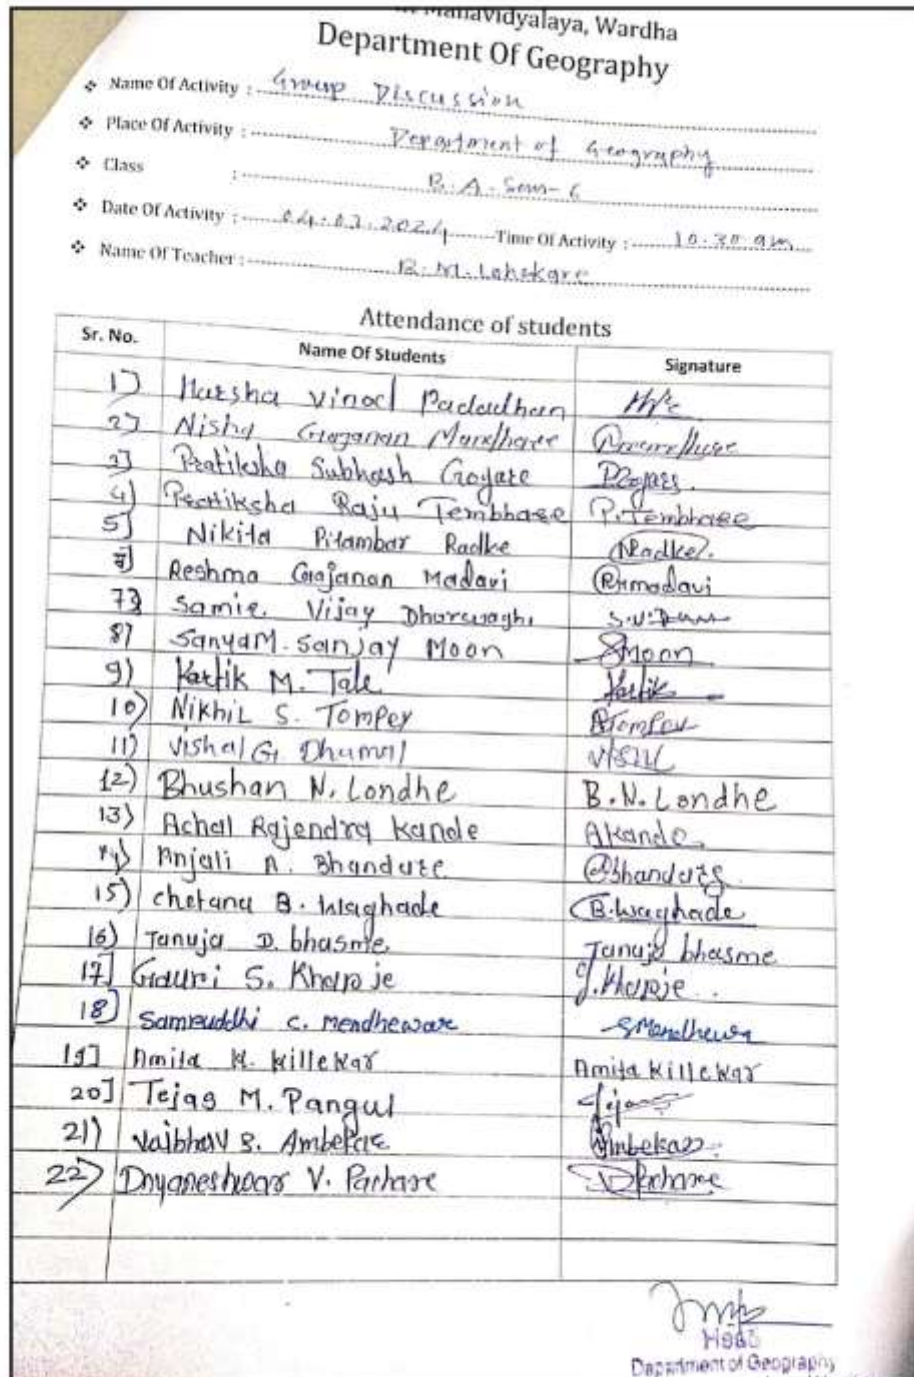 Mahavidyalaya, Wardha
Department Of Geography
❖ Name Of Activity : Group Discussion
❖ Place Of Activity : Department of Geography
❖ Class : B.A. Sem-6
❖ Date Of Activity : 04.03.2024 Time Of Activity : 10.30 am
❖ Name Of Teacher : R.M. Lohakare
Attendance of students
Sr. No. Name Of Students Signature
1) Harsha Vinod Padadhan
2) Nisha Gajanan Mandhare
3) Pratiksha Subhash Gogate
4) Pratiksha Raju Tembhare P.Tembhare
5) Nikita Pitambar Radke NRadke.
Reshma Gajanan Madavi Rmadavi
7) Samir Vijay Dhurwaghi
8) Sanyam. Sanjay Moon SMoon
9) Kartik M. Tale Kartik
10) Nikhil S. Tompey
11) Vishal G. Dhumal
12) Bhushan N. Londhe B.N.Londhe
13) Achal Rajendra Kande AKande
14) Anjali A. Bhandure ABhandure
15) Chetana B. Waghade B.Waghade
16) Tanuja D. bhasme Tanuja bhasme
17] Gauri S. Khapje G.Khapje
18] Samruddhi C. Mendheware SMendhewar
19] Amita K. Killekar Amita Killekar
20] Tejas M. Pangul Tejas
21) Vaibhav S. Ambekar Ambekar
22) Dnyaneshwar V. Pachare DPachare
Head
Department of Geography